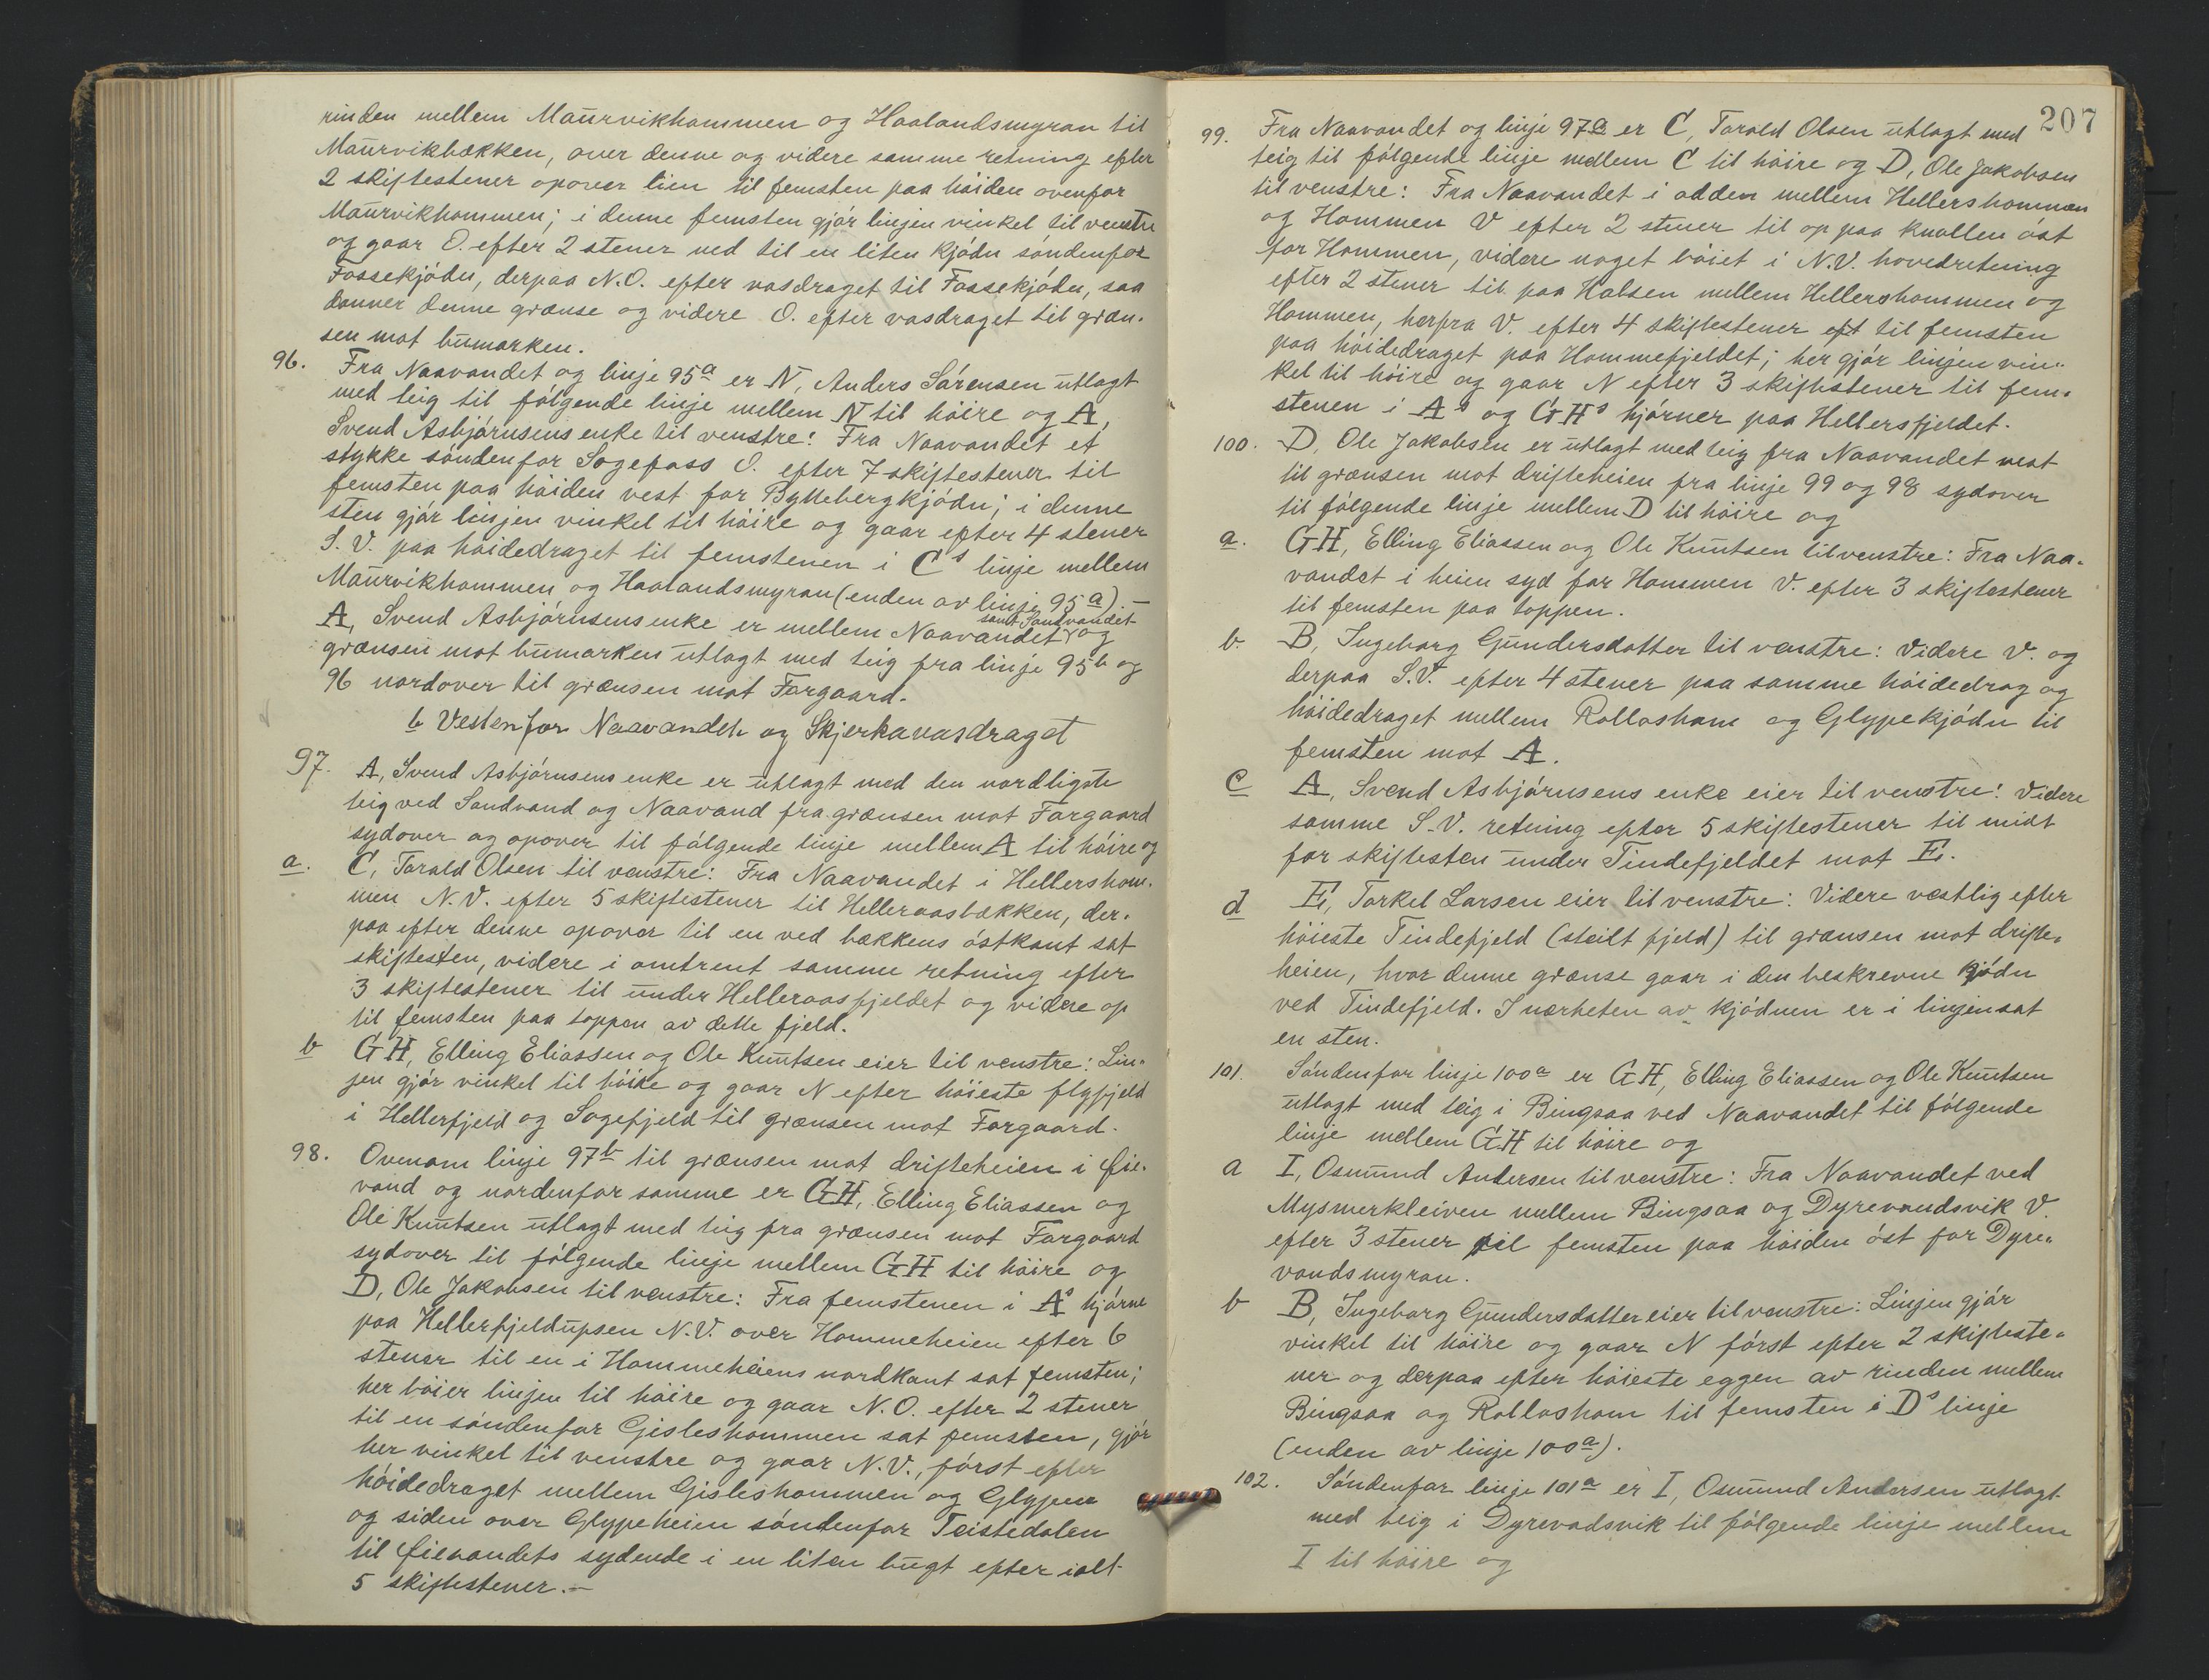 rinden mellem Maurvikhommen og Haalandsmyran til
Maurvikbækken, over denne og videre samme retning efter
2 skiftestener opover lien til femsten paa høiden ovenfor
Maurvikhommen; i denne femsten gjør linjen vinkel til venstre
og gaar O. efter 2 stener ned til en liten kjødn søndenfor
Fossekjødn, derpaa N.O. efter vasdraget til Fossekjødn, saa
danner denne grænse og videre O. efter vasdraget til græn-
sen mot bumarken.
96. Fra Naavandet og linje 95a er N, Anders Sørensen utlagt
med teig til følgende linje mellem N til høire og A,
Svend Asbjørnsens enke til venstre: Fra Naavandet et
stykke søndenfor Sogefoss O. efter 7 skiftestener til
femsten paa høiden vest for Byttebergkjødn; i denne
sten gjør linjen vinkel til høire og gaar efter 4 stener
S.V. paa høidedraget til femstenen i Cs linje mellem
Maurvikhommen og Haalandsmyran (enden av linje 95a).—
A, Svend Asbjørnsens enke er mellem Naavandet samt Sandvandet og
grænsen mot bumarken utlagt med teig fra linje 95b og
96 nordover til grænsen mot Forgaard.
b Vestenfor Naavandet og Skjerkavasdraget
97. A, Svend Asbjørnsens enke er utlagt med den nordligste
teig ved Sandvand og Naavand fra grænsen mot Forgaard
sydover og opover til følgende linje mellem A til høire og
a. C, Torald Olsen til venstre: Fra Naavandet i Hellershom-
men N.V. efter 5 skiftestener til Helleraasbækken, der-
paa efter denne opover til en ved bækkens østkant sat
skiftesten, videre i omtrent samme retning efter
3 skiftestener til under Helleraasfjeldet og videre op
til femsten paa toppen av dette fjeld.
b GH, Elling Eliassen og Ole Knutsen eier til venstre: Lin-
jen gjør vinkel til høire og gaar N efter høieste flyfjeld
i Hellerfjeld og Sogefjeld til grænsen mot Forgaard.
98. Ovenom linje 97b til grænsen mot drifteheien i Øie-
vand og nordenfor samme er GH, Elling Eliassen og
Ole Knutsen utlagt med teig fra grænsen mot Forgaard
sydover til følgende linje mellem GH til høire og
D, Ole Jakobsen til venstre: Fra femstenen i As hjørne
paa Hellerfjeldupsen N.V. over Hommeheien efter 6
stener til en i Hommeheiens nordkant sat femsten;
her bøier linjen til høire og gaar N.O. efter 2 stener
til en søndenfor Gisleshommen sat femsten, gjør
her vinkel til venstre og gaar N.V., først efter
høidedraget mellem Gisleshommen og Glypen
og siden over Glypeheien søndenfor Teistedalen
til Øievandets sydende i en liten bugt efter ialt
5 skiftestener.—
207
99. Fra Naavandet og linje 97a er C, Torald Olsen utlagt med
teig til følgende linje mellem C til høire og D, Ole Jakobsen
til venstre: Fra Naavandet i odden mellem Hellershommen
og Hommen V efter 2 stener til op paa knollen øst
for Hommen, videre noget bøiet i N.V. hovedretning
efter 2 stener til paa Halsen mellem Hellershommen og
Hommen, herfra V. efter 4 skiftestener eft til femsten
paa høidedraget paa Hommefjeldet; her gjør linjen vin-
kel til høire og gaar N efter 3 skiftestener til fem-
stenen i As og GHs hjørner paa Hellersfjeldet.
100. D, Ole Jakobsen er utlagt med teig fra Naavandet vest
til grænsen mot drifteheien fra linje 99 og 98 sydover
til følgende linje mellem D til høire og
a. GH, Elling Eliassen og Ole Knutsen til venstre: Fra Naa-
vandet i heien syd for Hommen V. efter 3 skiftestener
til femsten paa toppen.
b. B, Ingeborg Gundersdatter til venstre: Videre V. og
derpaa S.V. efter 4 stener paa samme høidedrag og
høidedraget mellem Rollosham og Glypekjødn til
femsten mot A.
c A, Svend Asbjørnsens enke eier til venstre: Videre
samme S.V. retning efter 5 skiftestener til midt
for skiftesten under Tindefjeldet mot E.
d E, Torkel Larsen eier til venstre: Videre vestlig efter
høieste Tindefjeld (steilt fjeld) til grænsen mot drifte-
heien, hvor denne grænse gaar i den beskrevne kjødn
ved Tindefjeld. I nærheten av kjødnen er i linjen sat
en sten.
101. Søndenfor linje 100a er GH, Elling Eliassen og Ole Knutsen
utlagt med teig i Bingsaa ved Naavandet til følgende
linje mellem GH til høire og
a I, Osmund Andersen til venstre: Fra Naavandet ved
Mysmerkleiven mellem Bingsaa og Dyrevandsvik V.
efter 3 stener til femsten paa høiden øst for Dyre-
vandsmyran.
b B, Ingeborg Gundersdatter eier til venstre: Linjen gjør
vinkel til høire og gaar N først efter 2 skifteste-
ner og derpaa efter høieste eggen av rinden mellem
Bingsaa og Rollosham til femsten i Ds linje
(enden av linje 100a).
102. Søndenfor linje 101a er I, Osmund Andersen utlagt
med teig i Dyrevadsvik til følgende linje mellem
I til høire og